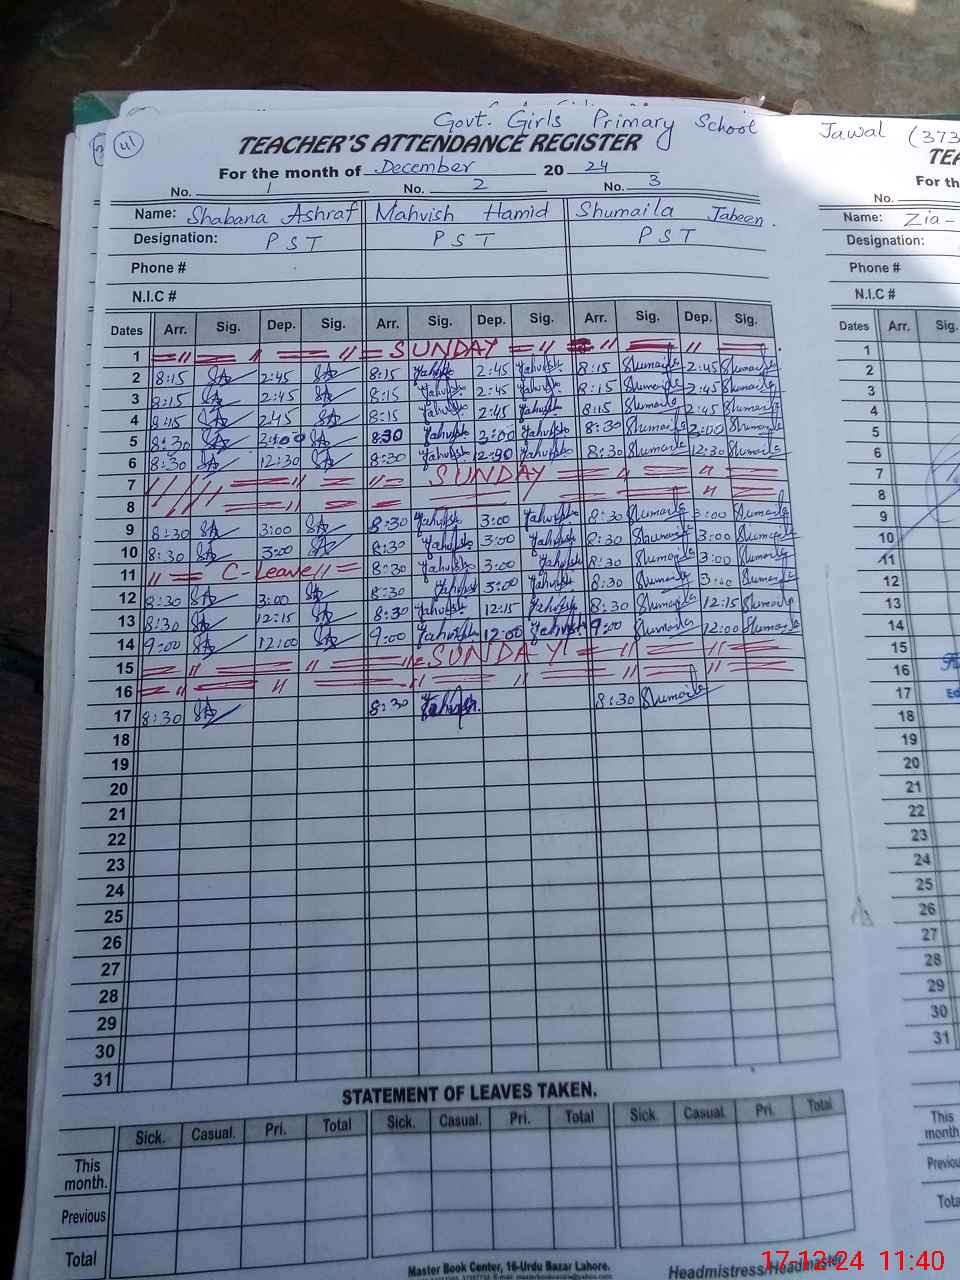 41
Govt. Girls Primary School Jawal (373
TEACHER'S ATTENDANCE REGISTER
For the month of December 2024
No. 1 No. 2 No. 3
Name: Shabana Ashraf Mahvish Hamid Shumaila Jabeen.
Designation: PST PST PST
Phone #
N.I.C #
Dates Arr. Sig. Dep. Sig. Arr. Sig. Dep. Sig. Arr. Sig. Dep. Sig.
1 SUNDAY
2 8:15 SA 2:45 SA 8:15 Mahvish 2:45 Mahvish 8:15 Shumaila 2:45 Shumaila
3 8:15 SA 2:45 SA 8:15 Mahvish 2:45 Mahvish 8:15 Shumaila 2:45 Shumaila
4 8:15 SA 2:45 SA 8:15 Mahvish 2:45 Mahvish 8:15 Shumaila 2:45 Shumaila
5 8:30 SA SA 8:30 Mahvish 2:00 Mahvish 8:30 Shumaila 2:00 Shumaila
6 8:30 SA 12:30 SA 8:30 Mahvish 12:30 Mahvish 8:30 Shumaila 12:30 Shumaila
7 SUNDAY
8
9 8:30 SA 3:00 SA 8:30 Mahvish 3:00 Mahvish 8:30 Shumaila 3:00 Shumaila
10 8:30 SA 3:00 SA 8:30 Mahvish 3:00 Mahvish 8:30 Shumaila 3:00 Shumaila
11 C-Leave 8:30 Mahvish 3:00 Mahvish 8:30 Shumaila 3:00 Shumaila
12 8:30 SA 3:00 SA 8:30 Mahvish 3:00 Mahvish 8:30 Shumaila 3:00 Shumaila
13 8:30 SA 12:15 SA 8:30 Mahvish 12:15 Mahvish 8:30 Shumaila 12:15 Shumaila
14 9:00 SA 12:00 SA 9:00 Mahvish 12:00 Mahvish 9:00 Shumaila 12:00 Shumaila
15 SUNDAY
16
17 8:30 SA 8:30 Mahvish 8:30 Shumaila
18
19
20
21
22
23
24
25
26
27
28
29
30
31
STATEMENT OF LEAVES TAKEN.
Sick. Casual. Pri. Total Sick. Casual. Pri. Total Sick. Casual. Pri. Total
This month.
Previous
Total
Master Book Center, 16-Urdu Bazar Lahore.
Headmistress/Headmaster
TEA
For th
No.
Name: Zia-
Designation:
Phone #
N.I.C #
Dates Arr. Sig.
1
2
3
4
5
6
7
8
9
10
11
12
13
14
15
16
17
18
19
20
21
22
23
24
25
26
27
28
29
30
31
This
month
Previou
Tota
17-12-24 11:40